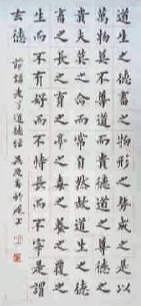 道生之德畜之物形之勢成之是以
萬物莫不尊道而貴德道之尊德之
貴夫莫之命而常自然故道生之德
畜之長之育之亭之毒之養之覆之
生而不有為而不恃長而不宰是謂
玄德
節錄老子道德經